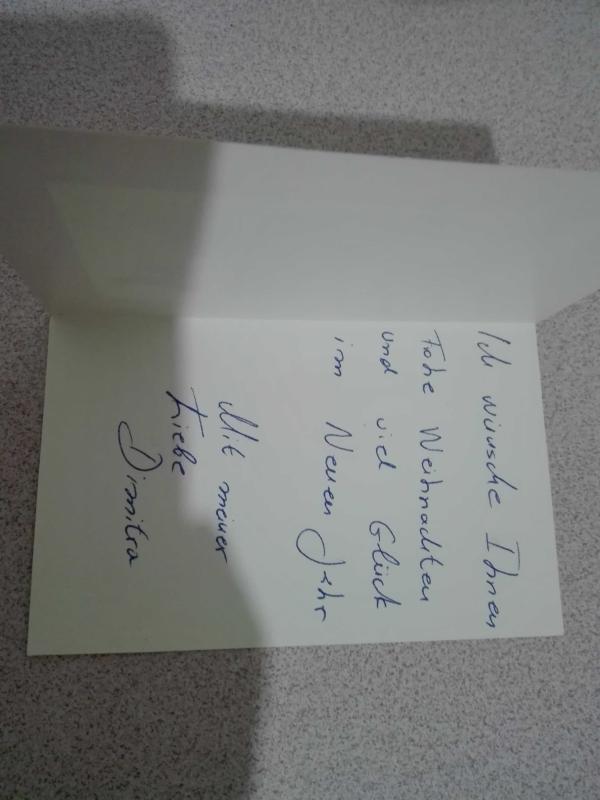 Ich wünsche Ihnen
Frohe Weihnachten
und viel Glück
im Neuen Jahr
Mit meiner
Liebe
Dimitra